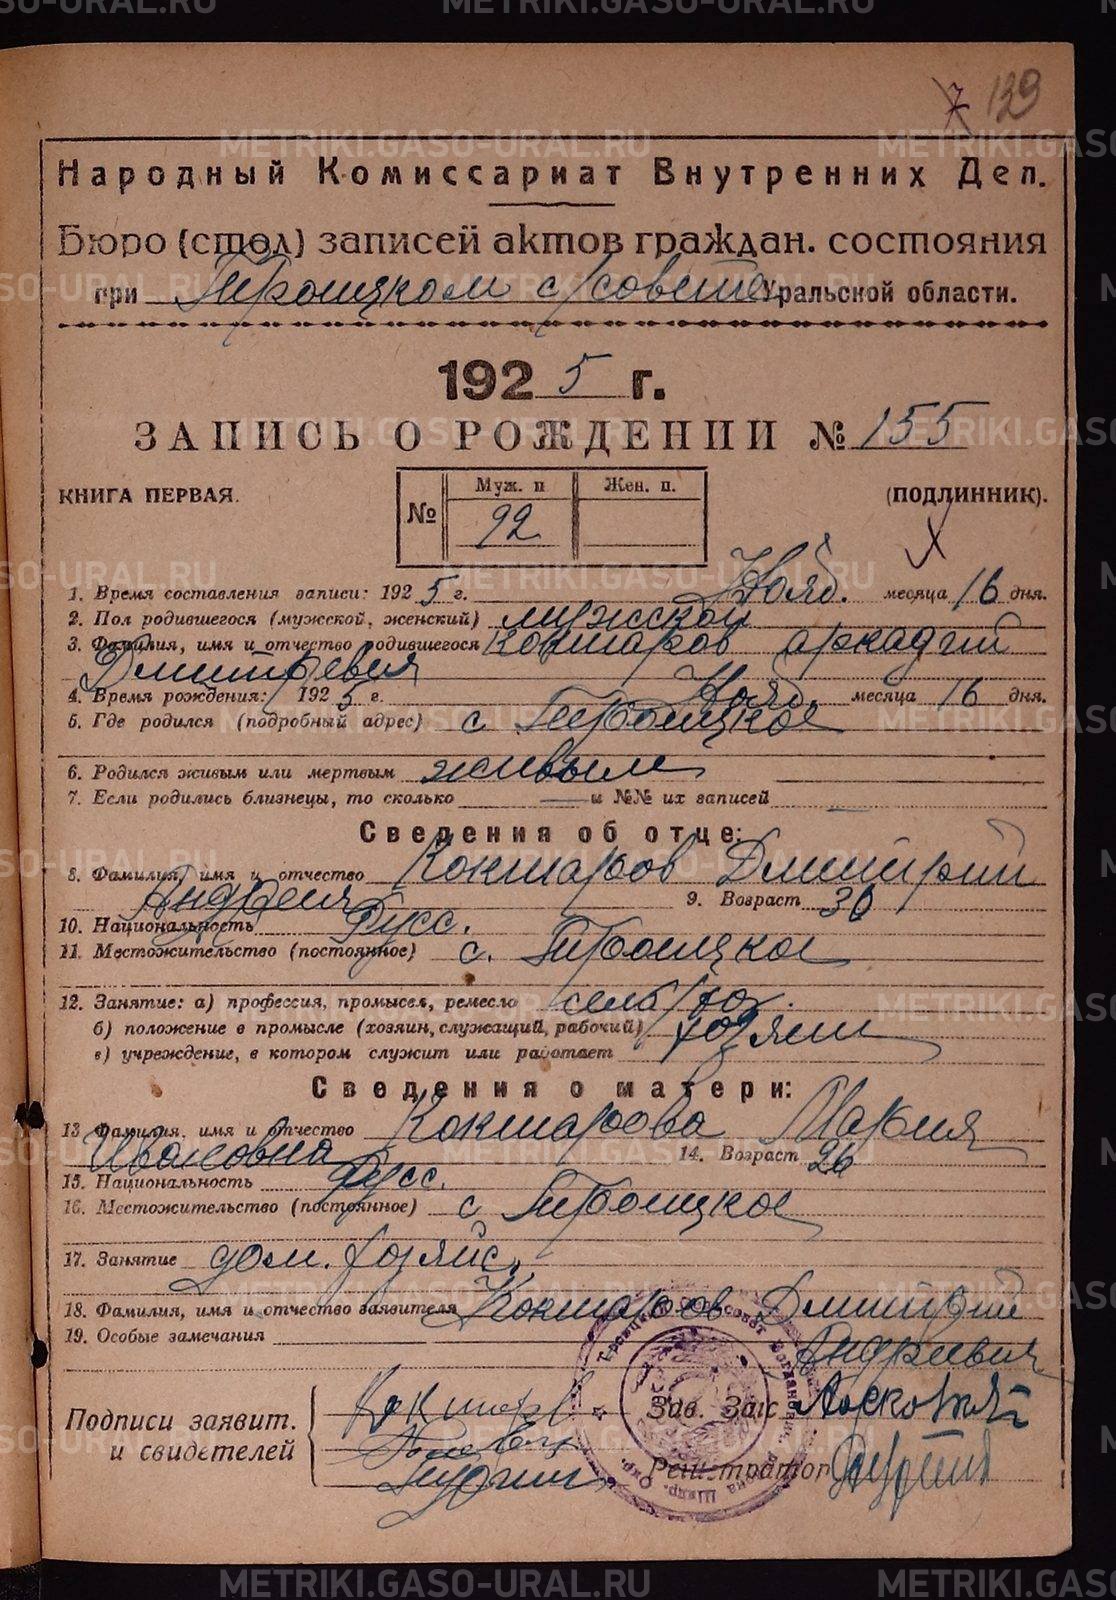 139
Народный Комиссариат Внутренних Дел.
Бюро (стол) записей актов граждан. состояния
при Троицком с/совете Уральской области.
1925 г.
ЗАПИСЬ О РОЖДЕНИИ № 155
КНИГА ПЕРВАЯ. № Муж. п 92 Жен. п. (ПОДЛИННИК).
1. Время составления записи: 1925 г. Нояб. месяца 16 дня.
2. Пол родившегося (мужской, женский) мужской
3. Фамилия, имя и отчество родившегося Кокшаров аркадий
Дмитревич
4. Время рождения: 1925 г. Нояб. месяца 16 дня.
5. Где родился (подробный адрес) с Троицкое
6. Родился живым или мертвым живым
7. Если родились близнецы, то сколько — и №№ их записей —
Сведения об отце:
8. Фамилия, имя и отчество Кокшаров Дмитрий
9. Возраст 30
10. Национальность Русс.
11. Местожительство (постоянное) с. Троицкое
12. Занятие: а) профессия, промысел, ремесло сельс/хоз.
б) положение в промысле (хозяин, служащий, рабочий) хозяин
в) учреждение, в котором служит или работает
Сведения о матери:
13 Фамилия, имя и отчество Кокшарова Мария
Ивановна 14. Возраст 26
15. Национальность Русс.
16. Местожительство (постоянное) с Троицкое
17. Занятие дом. хозяйс.
18. Фамилия, имя и отчество заявителя Кокшаров Дмитрий
19. Особые замечания Андреевич
Подписи заявит. Кокшаров Зав. Загс
и свидетелей Регистратор
METRIKI.GASO-URAL.RU